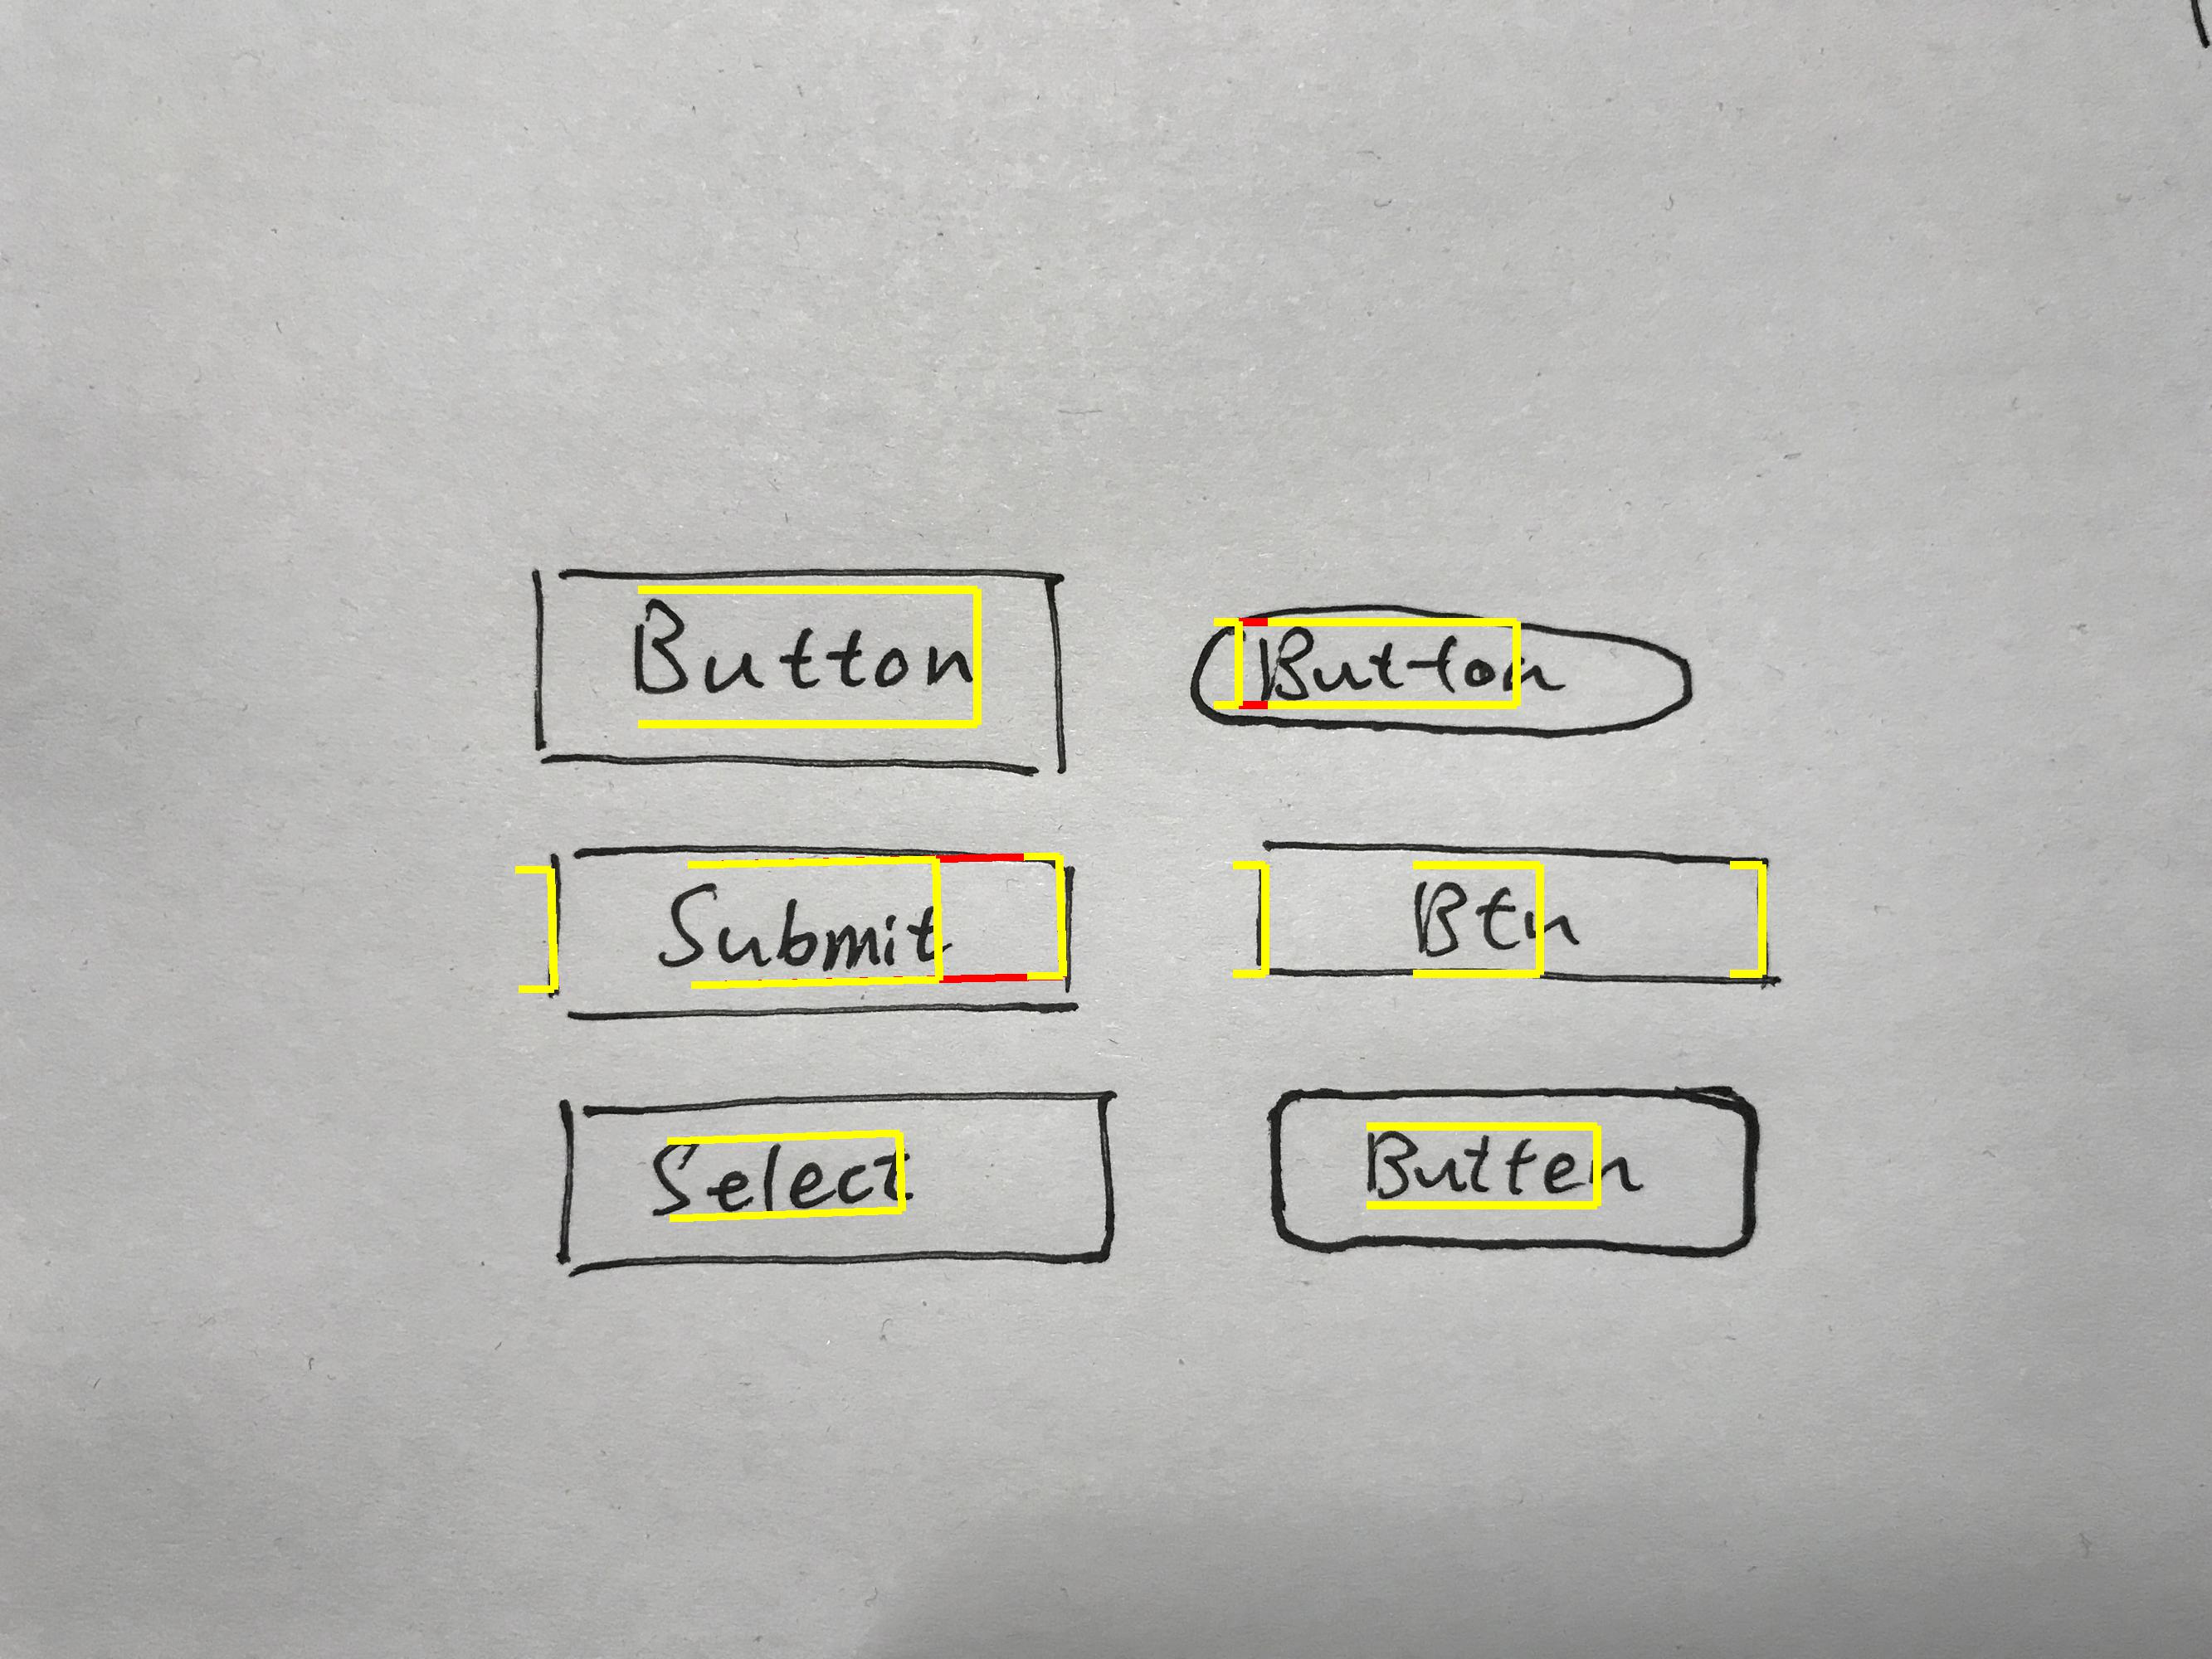 Button Button
Submit Btn
Select Butten